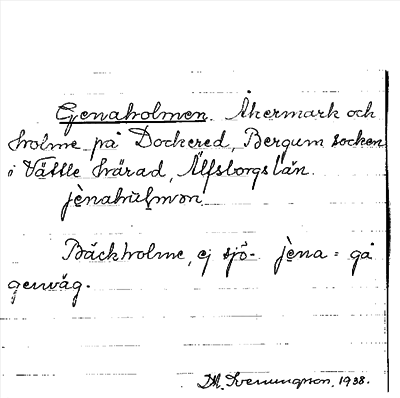 Genaholmen. Åkermark och
holme på Dockered, Bergum socken
i Vättle härad, Älfsborgs län.
jènahu̇l̥mən.
Bäckholme, ej sjö- jèna = gå
genväg.
Svenungsson, 1938.